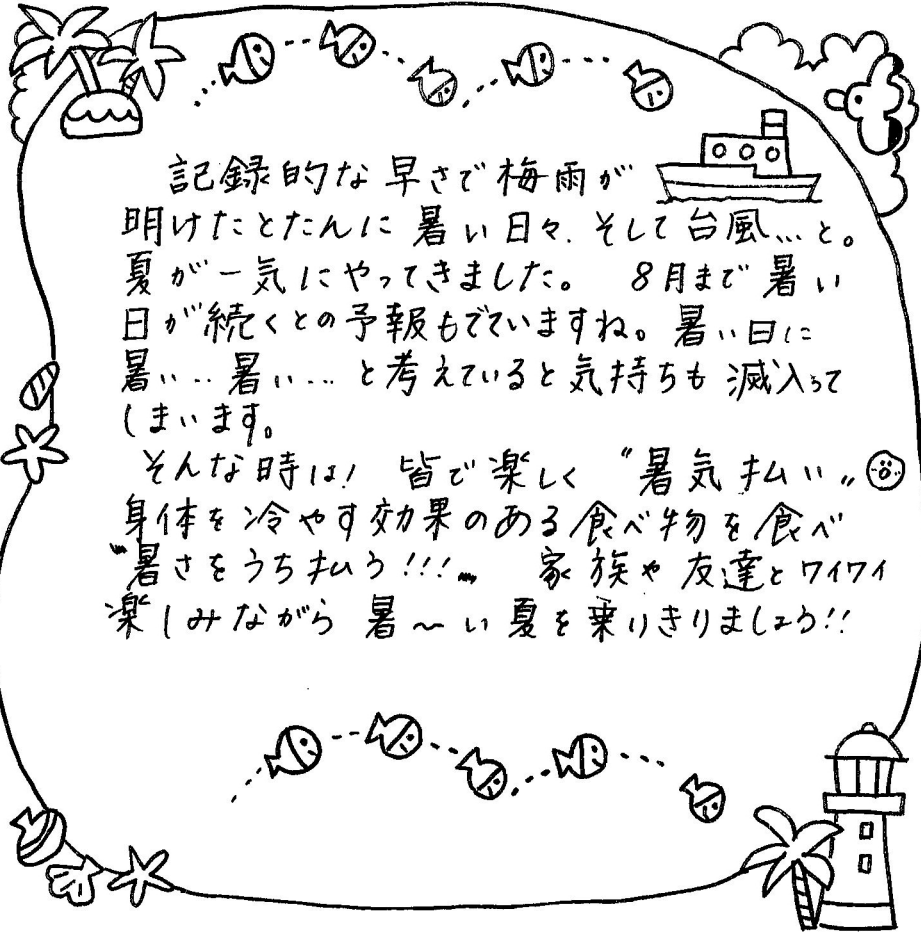 記録的な早さで梅雨が
明けたとたんに 暑い日々、そして台風…と。
夏が一気にやってきました。 8月まで暑い
日が続くとの予報もでていますね。暑い日に
暑い‥暑い…と考えていると気持ちも滅入って
しまいます。
そんな時は! 皆で楽しく “暑気払い”
身体を冷やす効果のある食べ物を食べ
“暑さをうち払う!!!” 家族や友達とワイワイ
楽しみながら 暑〜い夏を乗りきりましょう!!